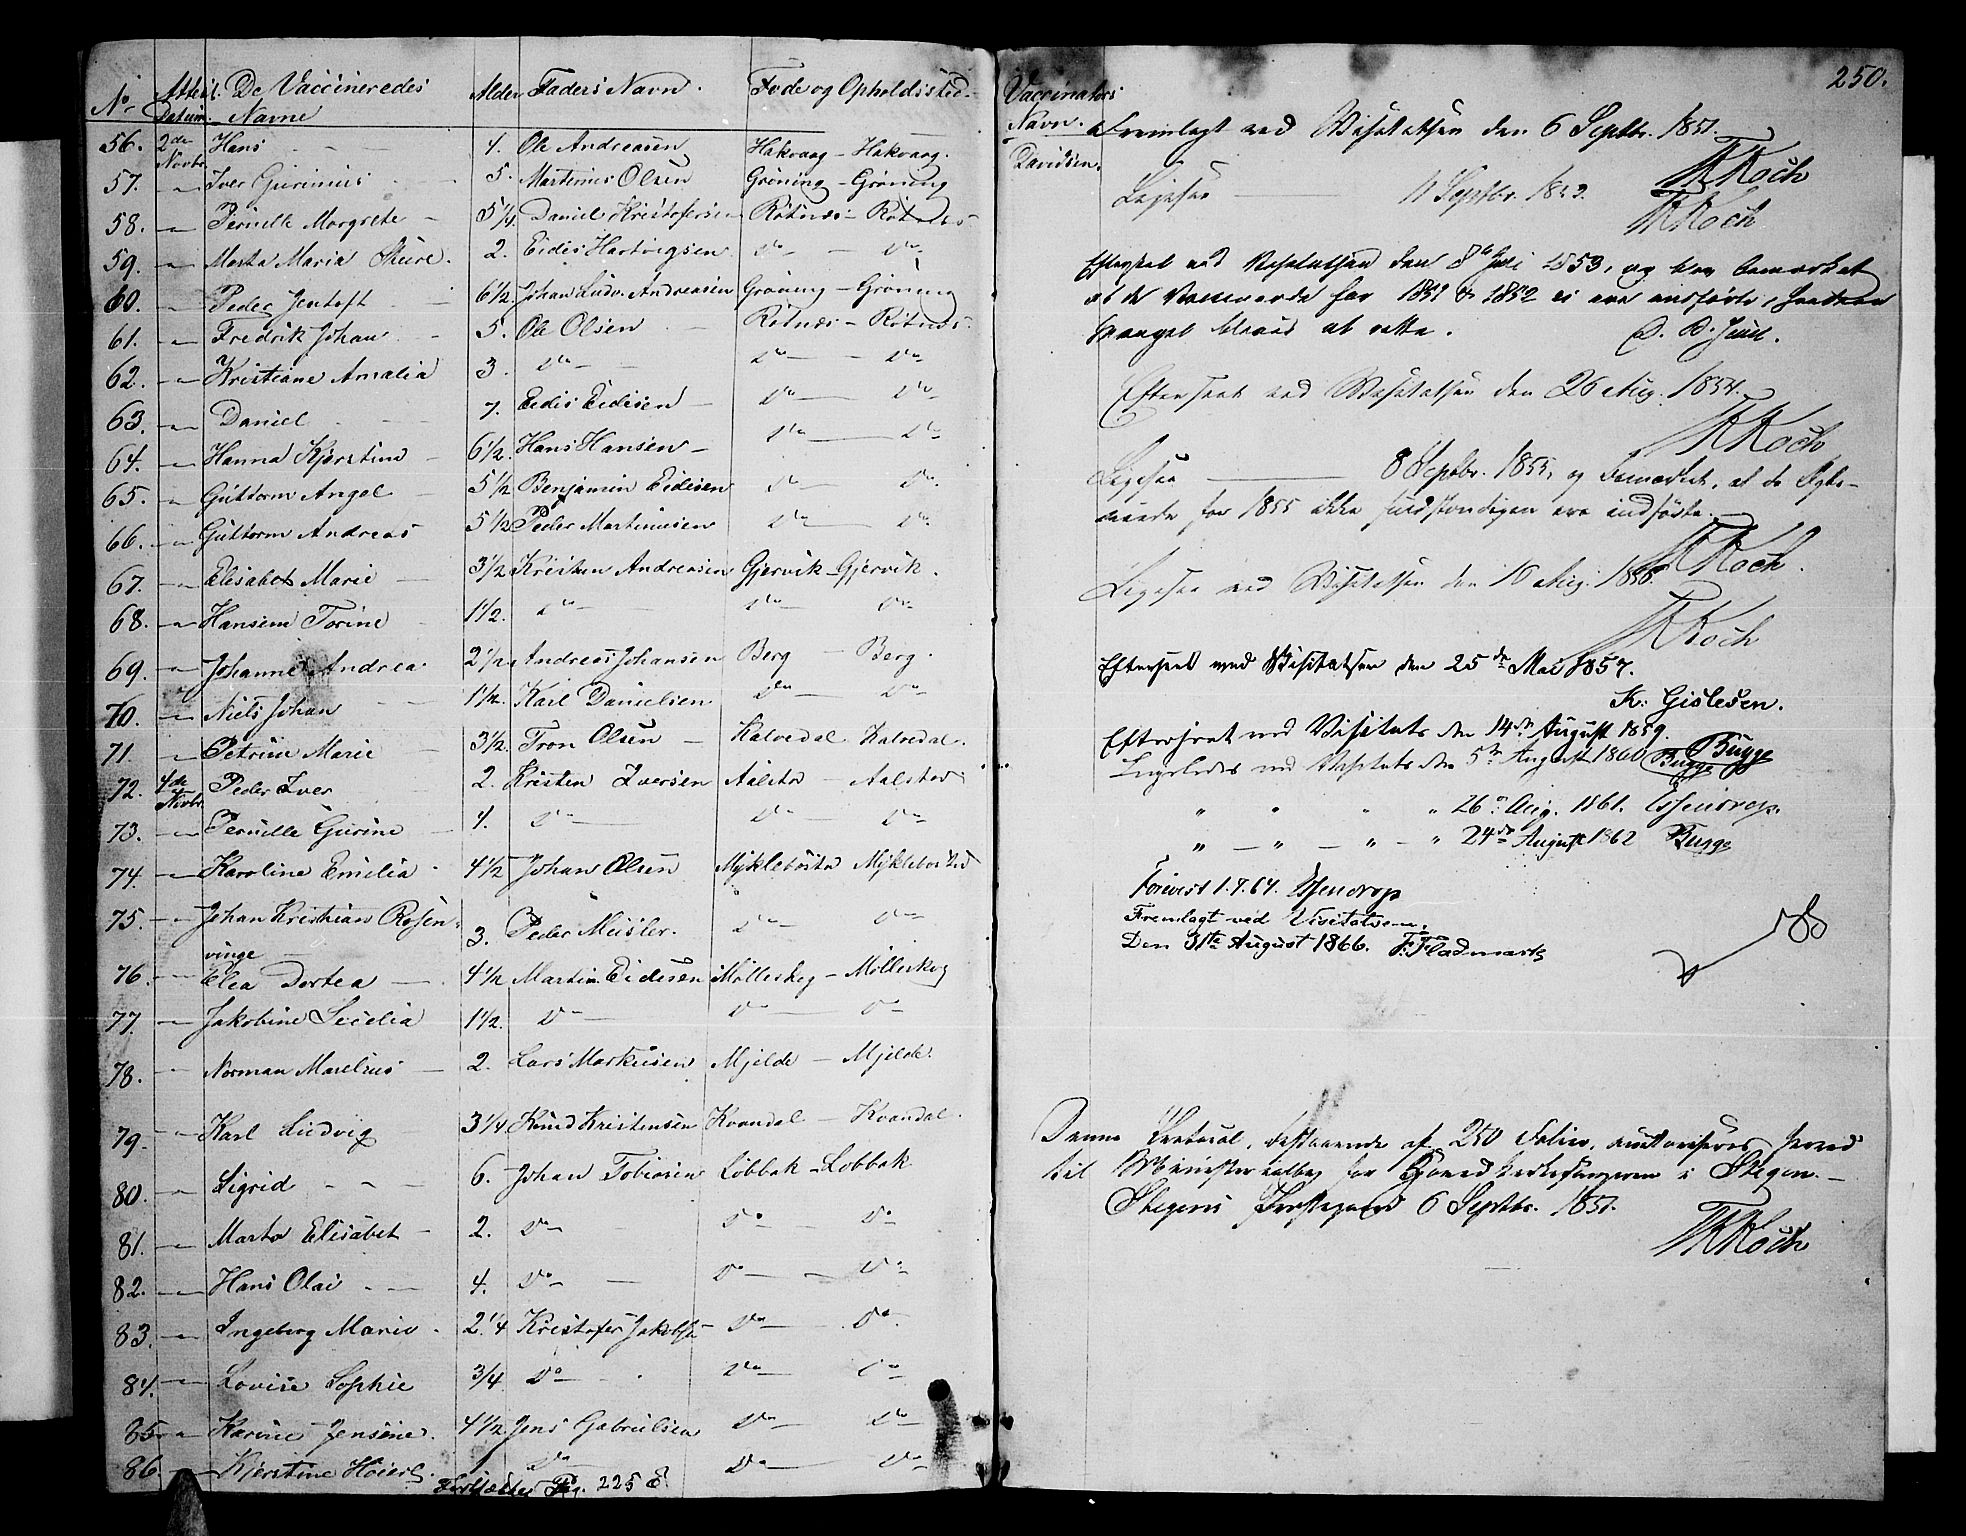 No. Attest. De Vaccineredes Alder Faders Navn. Føde og Opholdssted.
Datum. Navne
56. 2den Novbr. Hans 4. Ole Andreasen Hakvaag - Hakvaag.
57. -"- Iver Gurinius 5. Martinus Olsen Grøning - Grøning
58. -"- Pernille Margrete 5 1/4 Daniel Kristofersen Røtnæs - Røtnæs
59. -"- Marta Maria 2. Eidis Hartvigsen Do - Do
60. -"- Peder Jentoft 6 1/2 Johan Ludv. Andreasen Grøning - Grøning
61. -"- Fredrik Johan 5. Ole Olsen Røtnæs - Røtnæs
62. -"- Kristiane Amalia 3. Do Do Do
63. -"- Daniel 7. Eidis Eidisen Do Do
64. -"- Hanna Kjerstine 6 1/2 Hans Hansen Do Do
65. -"- Guttorm Angel 5 1/2 Benjamin Eidisen Do Do
66. -"- Guttorm Andreas 5 1/2 Peder Martinusen Do Do
67. -"- Elisabet Marie 3 1/2 Kristen Andreasen Gjervik - Gjervik.
68. -"- Hansine Torine 1 1/2. Do Do Do
69. -"- Johanne Andrea 2 1/2 Andreas Johansen Berg - Berg.
70. -"- Niels Johan 1 1/2. Karl Danielsen Do Do
71. -"- Petrine Marie 3 1/2. Tron Olsen Kalvedal Kalvedal.
72. 4de Novbr. Peder Iver 2. Kristen Iversen Aalstad - Aalstad
73. -"- Pernille Gurine 4. Do Do Do
74. -"- Karoline Emilia 4 1/2 Johan Olsen Myklebostad Myklebostad
75. -"- Johan Kristian Rosen-
vinge 3. Peder Do Do
76. -"- Elea Dortea 4 1/2 Martin Eidisen Mølleskog - Mølleskog
77. -"- Jakobine Secelia 1 1/2. Do Do Do
78. -"- Norman Marelius 2. Lars Markusen Mjelde - Mjelde.
79. -"- Karl Ludvig 3 1/4 Knud Kristensen Kvandal - Kvandal.
80. -"- Sigrid 6. Johan Tobiasen Løbbak - Løbbak
81. -"- Marta Elisabet 2. Do Do Do
82. -"- Hans Olai 4. Do Do Do
83. -"- Ingeborg Marie 2 1/4 Kristofer Jakobsen Do Do
84. -"- Lovise Sophie 3/4 Do Do Do
85. -"- Karine Jensine 4 1/2 Jens Gabrielsen Do Do
86. -"- Kjerstine Do Do Do
Fortsættes Pag. 225
250.
Vaccinators
Navn.
Davidsen.
Fremlagt ved Visitatsen den 6 Septbr. 1851.
Koch
Ligesaa 11 Septbr. 1852.
Koch
Efterseet ved Visitatsen den 8de Juli 1853, og bemærket
at de Vaccinerede for 1851 & 1852 ei ere anførte,
Mangel bliver at rette. Juul.
Efterseet ved Visitatsen den 26 Aug. 1854.
Koch
Ligesaa 8 Septbr. 1855, og bemærket, at de
for 1855 ikke fuldstændigen ere indførte.
Koch.
Ligesaa ved Visitatsen den 10 Aug. 1856.
Koch
Efterseet ved Visitatsen den 25de Mai 1857.
K. Gislesen.
Efterseet ved Visitats den 14de August 1859.
Bugge
Ligeledes ved Visitats den 5te August 1860 Bugge
" " " " 26de Aug. 1861. Essendrop.
" - " - " - " 24de August 1862 Bugge
Forevist 1.7.64. Essendrop
Fremlagt ved Visitatsen,
Den 31te August 1866. F. Fladmark
Denne Protocol, bestaaende af 250 Folier, autoriseres herved
til Ministerialbog for Hovedkirkesangeren i Stegen.
Stegens Præstegaard 6 Septbr. 1851.
Koch